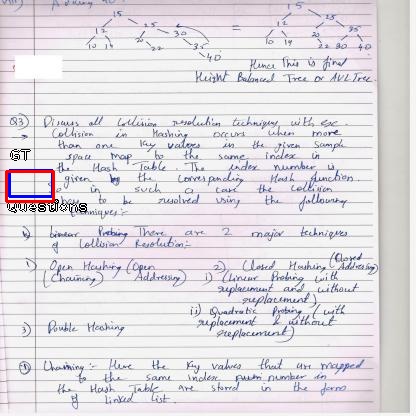 Adding 40
15
15
12
25
30
10 14
22
35
40
=
15
12
20
10 14
25
35
22
30
40
Hence This is final
Height Balanced Tree or AVL Tree.
Q3) Discuss all Collision resolution techniques with ex.
→ Collision in Hashing occurs when more
than one key values in the given sample
GT
space map to the same index in
the Hash Table. The index number is
given by the corresponding Hash function.
So in such a case the Collision
has to be resolved using the following
Questions
techniques:-
There are 2 major techniques
of Collision Resolution:-
1) Open Hashing (Open Addressing) (Chaining)
2) Closed Hashing (Closed Addressing)
i) (Linear Probing with
replacement and without
replacement)
ii) Quadratic Probing (with
replacement & without
replacement)
3) Double Hashing
① Chaining:- Here the key values that are mapped
to the same index number in
the Hash Table are stored in the form
of linked list.